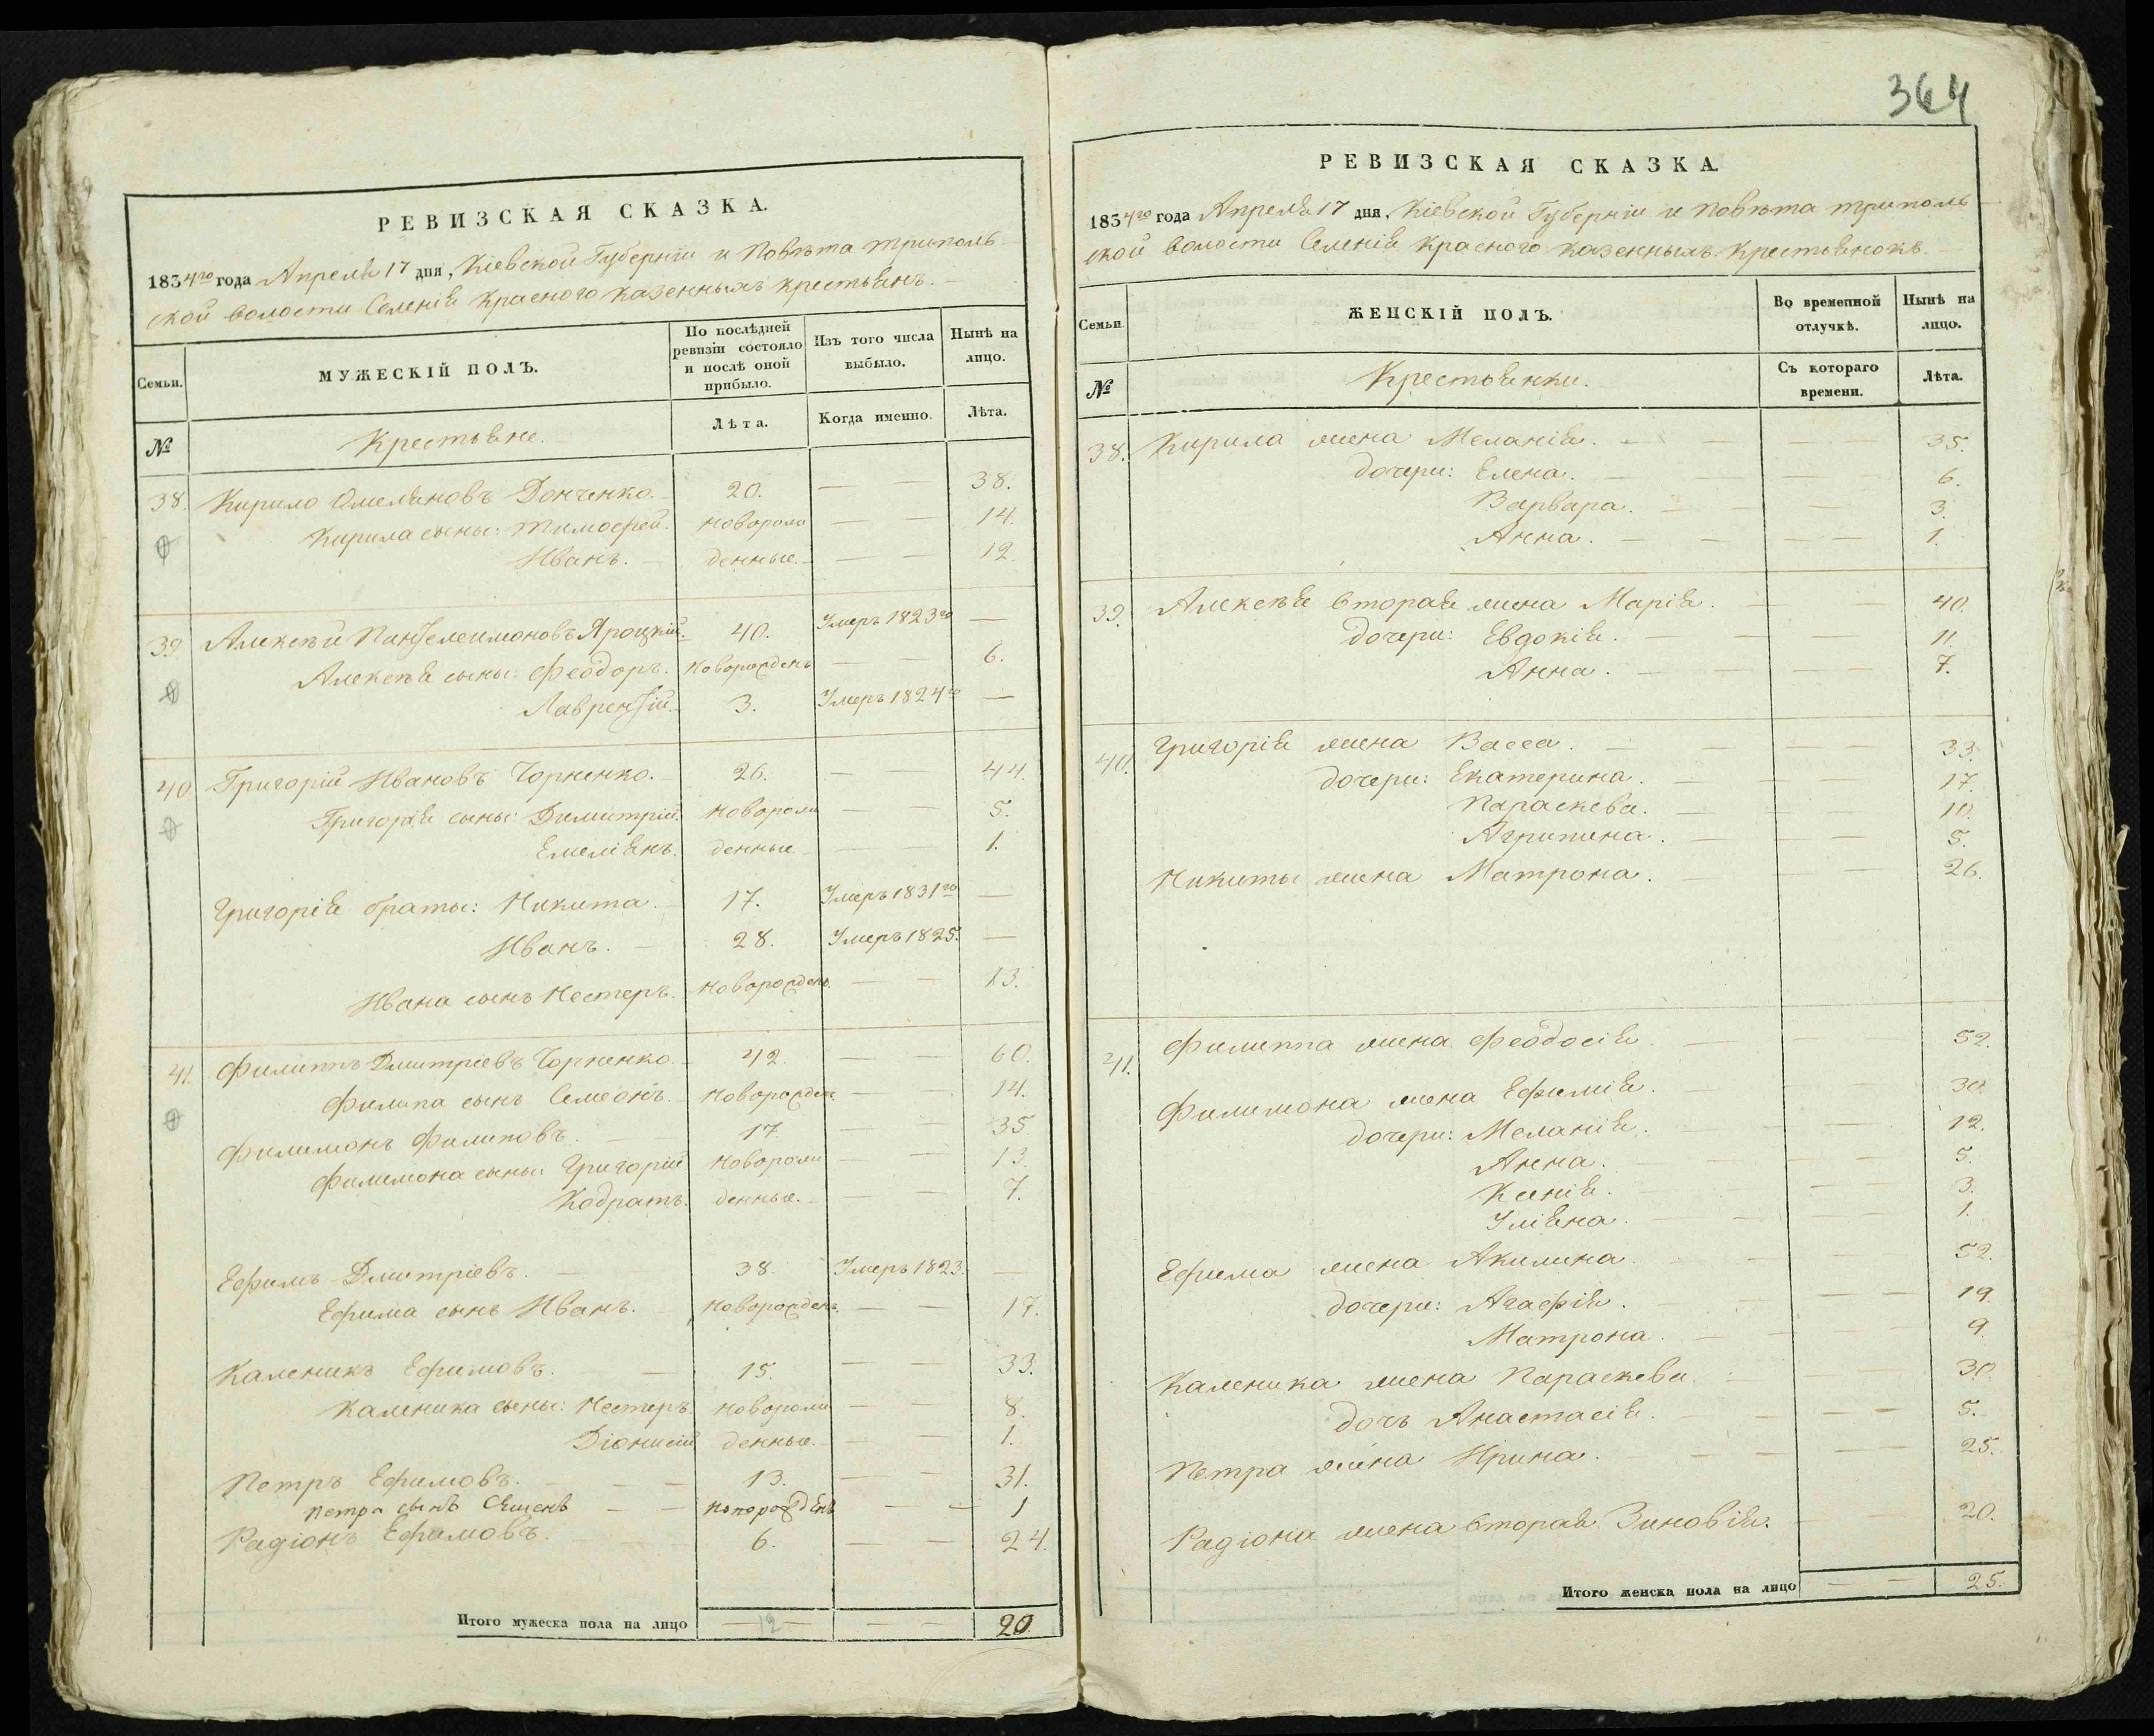 РЕВИЗСКАЯ СКАЗКА.
1834го года Апреля 17 дня, Кіевской Губерніи и Повѣта Триполь-
ской волости Селенія Красного казенныхъ крестьянъ.
Семьи. МУЖЕСКІЙ ПОЛЪ. По послѣдней ревизіи состояло и послѣ оной прибыло. Изъ того числа выбыло. Нынѣ на лицо.
№ Крестьяне. Лѣта. Когда именно. Лѣта.
38. Кирило Омеляновъ Донченко. 20. — — 38.
Кирила сыны: Тимофей. новорож — — 14.
Иванъ. денные. — — 12
39. Алексѣй Пантелеимоновъ Яроцкій. 40. Умеръ 1823го —
Алексѣя сыны: Феодоръ. новорожденъ — — 6.
Лаврентій. 3. Умеръ 1824го —
40 Григорій Ивановъ Чорненко. 26. — — 44.
Григорія сыны: Димитрій. новорож — — 5.
Емеліянъ. денные. — — 1.
Григорія браты: Никита. 17. Умеръ 1831го —
Иванъ. 28. Умеръ 1825. —
Ивана сынъ Нестеръ. новорожденъ — — 13.
41. Филиппъ Дмитріевъ Чорненко. 42. — — 60.
Филипа сынъ Семеонъ. новорожден. — — 14.
Филимонъ Филиповъ. 17. — — 35.
Филимона сыны: Григорій новорож — — 13.
Кодратъ. денные. — — 7.
Ефимъ Дмитріевъ. 38. Умеръ 1823. —
Ефима сынъ Иванъ. новорожденъ. — — 17.
Каленикъ Ефимовъ. 15. — — 33.
Каленика сыны: Нестеръ. новорож — — 8.
Діонисій денные. — — 1.
Петръ Ефимовъ. 13. — — 31.
Петра сынъ Семенъ новорожденъ — — 1
Радіонъ Ефимовъ. 6. — — 24.
Итого мужеска пола на лицо 12 — — 20.
364
РЕВИЗСКАЯ СКАЗКА.
1834го года Апреля 17 дня, Кіевской Губерніи и Повѣта Триполь-
ской волости Селенія Красного казенныхъ крестьянокъ.
Семьи. ЖЕНСКІЙ ПОЛЪ. Во временной отлучкѣ. Нынѣ на лицо.
№ Крестьянки. Съ котораго времени. Лѣта.
38. Кирила жена Меланія. — — 35.
дочери: Елена. — — 6.
Варвара. — — 3.
Анна. — — 1.
39. Алексѣя вторая жена Марія. — — 40.
дочери: Евдокія. — — 11.
Анна. — — 7.
40. Григорія жена Васса. — — 33.
дочери: Екатерина. — — 17.
Параскева. — — 10.
Агрипина. — — 5.
Никиты жена Матрона. — — 26.
41. Филиппа жена Феодосія — — 52.
Филимона жена Ефимія. — — 30.
дочери: Меланія. — — 12.
Анна. — — 5.
Ксенія. — — 3.
Уліяна. — — 1.
Ефима жена Акилина. — — 52.
дочери: Агафія. — — 19.
Матрона. — — 9.
Каленика жена Параскева. — — 30.
дочь Анастасія. — — 5.
Петра жена Ирина. — — 25.
Радіона жена вторая Зиновія. — — 20.
Итого женска пола на лицо — — 25.